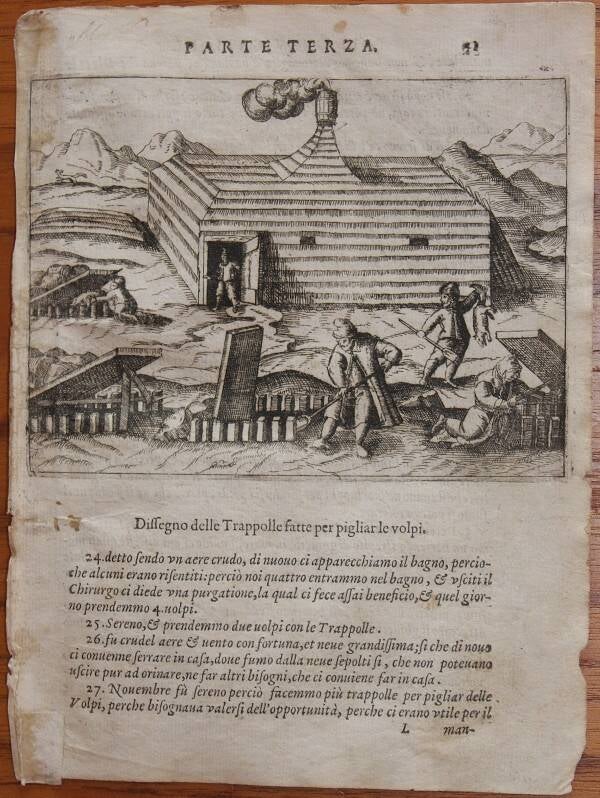 PARTE TERZA.
Dissegno delle Trappolle fatte per pigliar le volpi.
24. detto sendo vn aere crudo, di nuouo ci apparecchiamo il bagno, percio-
che alcuni erano risentiti: perciò noi quattro entrammo nel bagno, & vsciti il
Chirurgo ci diede vna purgatione, la qual ci fece assai beneficio, & quel gior-
no prendemmo 4. uolpi.
25. Sereno, & prendemmo due uolpi con le Trappole.
26. fu crudel aere & uento con fortuna, et neue grandissima; si che di nouo
ci conuenne serrare in casa, doue fumo dalla neue sepolti si, che non poteuano
uscire pur ad orinare, ne far altri bisogni, che ci conuiene far in casa.
27. Nouembre fù sereno perciò facemmo più trappole per pigliar delle
Volpi, perche bisognaua valersi dell'opportunità, perche ci erano vtile per il
L man-